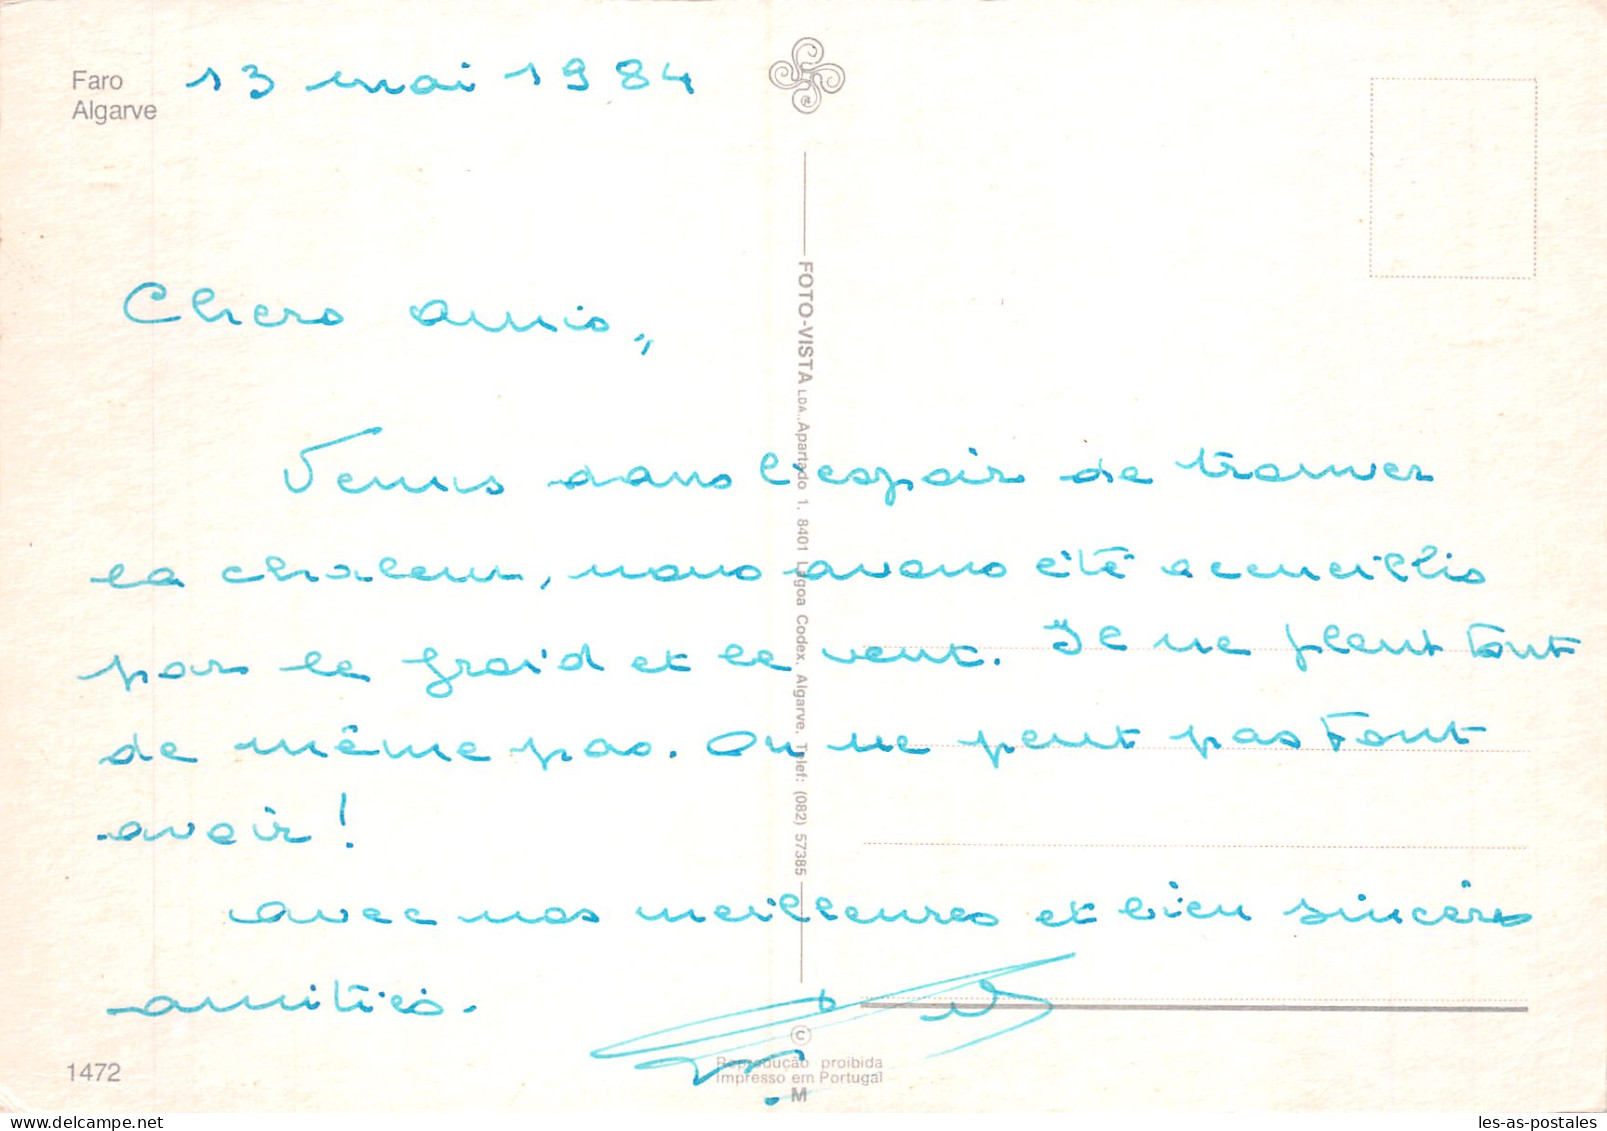 Faro
Algarve
13 mai 1984
Chers amis,
Venus dans l'espoir de trouver
la chaleur, nous avons été accueillis
par le froid et le vent. Il ne pleut tout
de même pas. On ne peut pas tout
avoir !
avec nos meilleures et bien sincères
amitiés.
FOTO-VISTA LDA., Apartado 1, 8401 Lagoa Codex, Algarve, Telef: (082) 57385
© 
Reprodução proibida
Impresso em Portugal
M
1472
les-as-postales